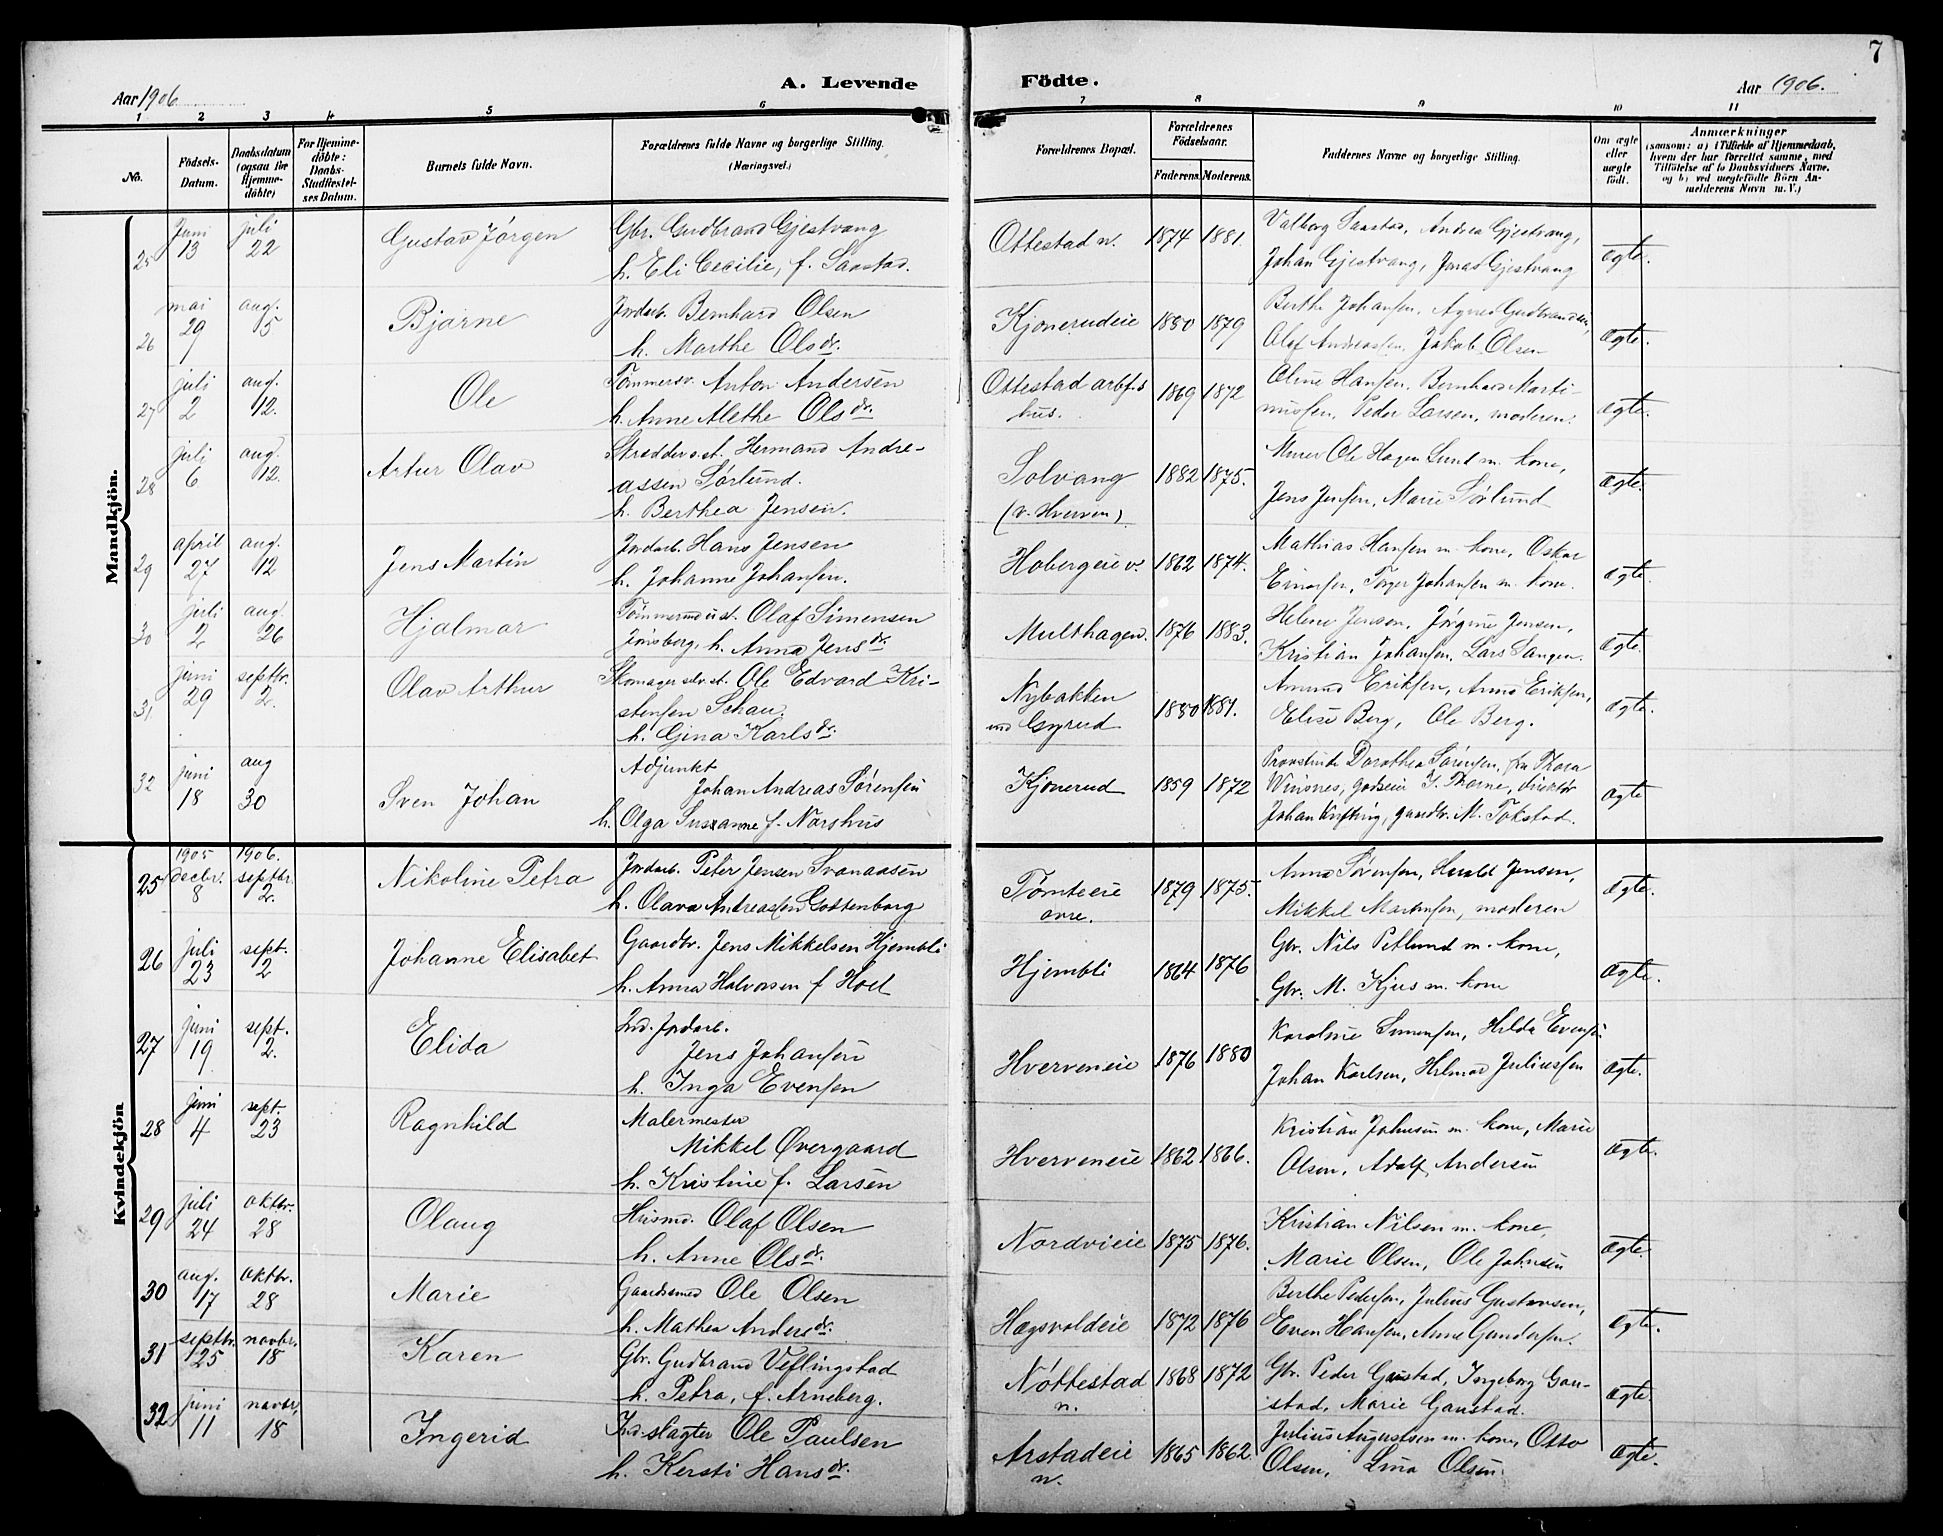 7
A. Levende Födte.
Aar 1906
Aar 1906.
1 2 3 4 5 6 7 8 9 10 11
No.
Födsels-Datum.
Daabsdatum (ogsaa for Hjemme-döbte)
For Hjemme-döbte: Daabs-Stadfæstel-ses Datum.
Barnets fulde Navn.
Forældrenes fulde Navne og borgerlige Stilling. (Næringsvei.)
Forældrenes Bopæl.
Forældrenes Födselsaar.
Faderens. Moderens.
Faddernes Navne og borgerlige Stilling.
Om ægte eller uægte födt.
Anmærkninger
(saasom: a) i Tilfælde af Hjemmedaab,
hvem der har forrettet samme, med
Tilföielse af to Daabsvidners Navne,
og b) ved uægtefödte Börn An-
melderens Navn m. V.)
Mandkjön.
25 juni 13 juli 22 Gustav Jörgen Gbr. Gudbrand Gjestvang Ottestad n. 1874 1881. Valborg Saxstad, Andrea Gjestvang, ægte.
h. Eli Cecilie, f. Saxstad. Johan Gjestvang, Jonas Gjestvang
26 mai 29 aug. 5 Bjarne Jordarb. Bernhard Olsen Kjonerudeie 1880 1879 Berthe Johansen, Agnes Gudbrandsen, ægte.
h. Marthe Olsdr. Olaf Andreassen, Jakob Olsen
27 juli 2 aug. 12. Ole Tømmersv. Anton Andersen Ottestad arbf.s 1869 1872 Oline Hansen, Bernhard Marti- ægte.
h. Anne Alethe Olsdr. hus. nussen, Peder Larsen, moderen.
28 juli 6 aug. 12. Artur Olav Skrædder s.st. Hermand Andre- Solvang 1882 1875. Murer Ole Hagen Lund m. kone, ægte.
assen Sørlund. (v. Hverven) Jens Jensen, Marie Sørlund
h. Berthea Jensen.
29 april 27 aug. 12 Jens Martin Jordarb. Hans Jensen Hobergeie v. 1862 1874. Mathias Hansen m. kone, Oskar ægte.
h. Johanne Johansen. Einarsen, Torger Johansen m. kone.
30 juli 2 aug. 26 Hjalmar Olaf Simensen Multhagen. 1876 1883. Helene Jensen, Jørgine Jensen, ægte.
Jønsberg, h. Anna Jensdr. Kristian Johansen, Lars Langen.
31 juni 29 septbr. 2. Olav Arthur Skomager selvst. Ole Edvard Kri- Nybakken 1880 1881. Amund Eriksen, Anna Eriksen, ægte.
stensen Schau. und Gyrud Elise Berg, Ole Berg.
h. Gina Karlsdr.
32 juni 18 aug 30 Sven Johan Adjunkt Kjonerud 1859 1872 Provstinde Dorothea Sørensen, fru Thora ægte
Johan Andreas Sørensen Winsnes, godseier J. Thorne, direktør
h. Olga Susanne f. Narshus Johan Kifting, gaardbr. M. Tokstad.
Kvindekjön
25 1905 decbr. 8 1906. septbr. 2. Nikoline Petra Jordarb. Peter Jensen Svenaasen Tomteeie 1879 1875. Anna Sørensen, Harald Jensen, ægte.
h. Olava Andreassen Gottenborg øvre. Mikkel Martinsen, moderen
26 juli 23 sept. 2 Johanne Elisabet Gaardbr. Jens Mikkelsen Hjembli Hjembli 1864 1876 Gbr. Nils Petlund m. kone, ægte.
h. Anna Halvorsen f Hoel Gbr. M. Kjus m. kone
27 juni 19 sept. 2. Elida Ind. Jordarb. Hverveneie 1876 1880 Karoline Simensen, Hilda Evensen ægte.
Jens Johansen Johan Karlsen, Helmar Juliussen
h. Inga Evensen
28 juni 4 sept. 23 Ragnhild Malermester Hverveneie 1862 1866. Kristian Johnsen m. kone, Marie ægte.
Mikkel Øvergaard Olsen, Adolf Andersen
h. Kristine f. Larsen
29 juli 24 oktbr. 28 Olaug Husmd. Olaf Olsen Nordvieie 1875 1876. Kristian Nilsen m. kone, ægte.
h. Anne Olsdr. Marie Olsen, Ole Johnsen
30 aug. 17 oktbr. 28 Marie Gaardsmed Ole Olsen Hagsvoldeie 1872 1876 Berthe Pedersen, Julius Gustavsen, ægte.
h. Mathea Andersdr. Even Hansen, Anne Gundersen.
31 septbr. 25 novbr. 18 Karen Gbr. Gudbrand Veflingstad Nøttestad 1868 1872 Gbr. Peder Gaustad, Ingeborg Gau- ægte.
h. Petra, f. Arneberg. n. stad, Marie Gaustad.
32 juni 11 novbr. 18 Ingerid Ind. slagter Ole Paulsen Arstadeie 1865 1862. Julius Augustsen m. kone, Otto ægte.
h. Kersti Hansdr. n. Olsen, Lina Olsen.